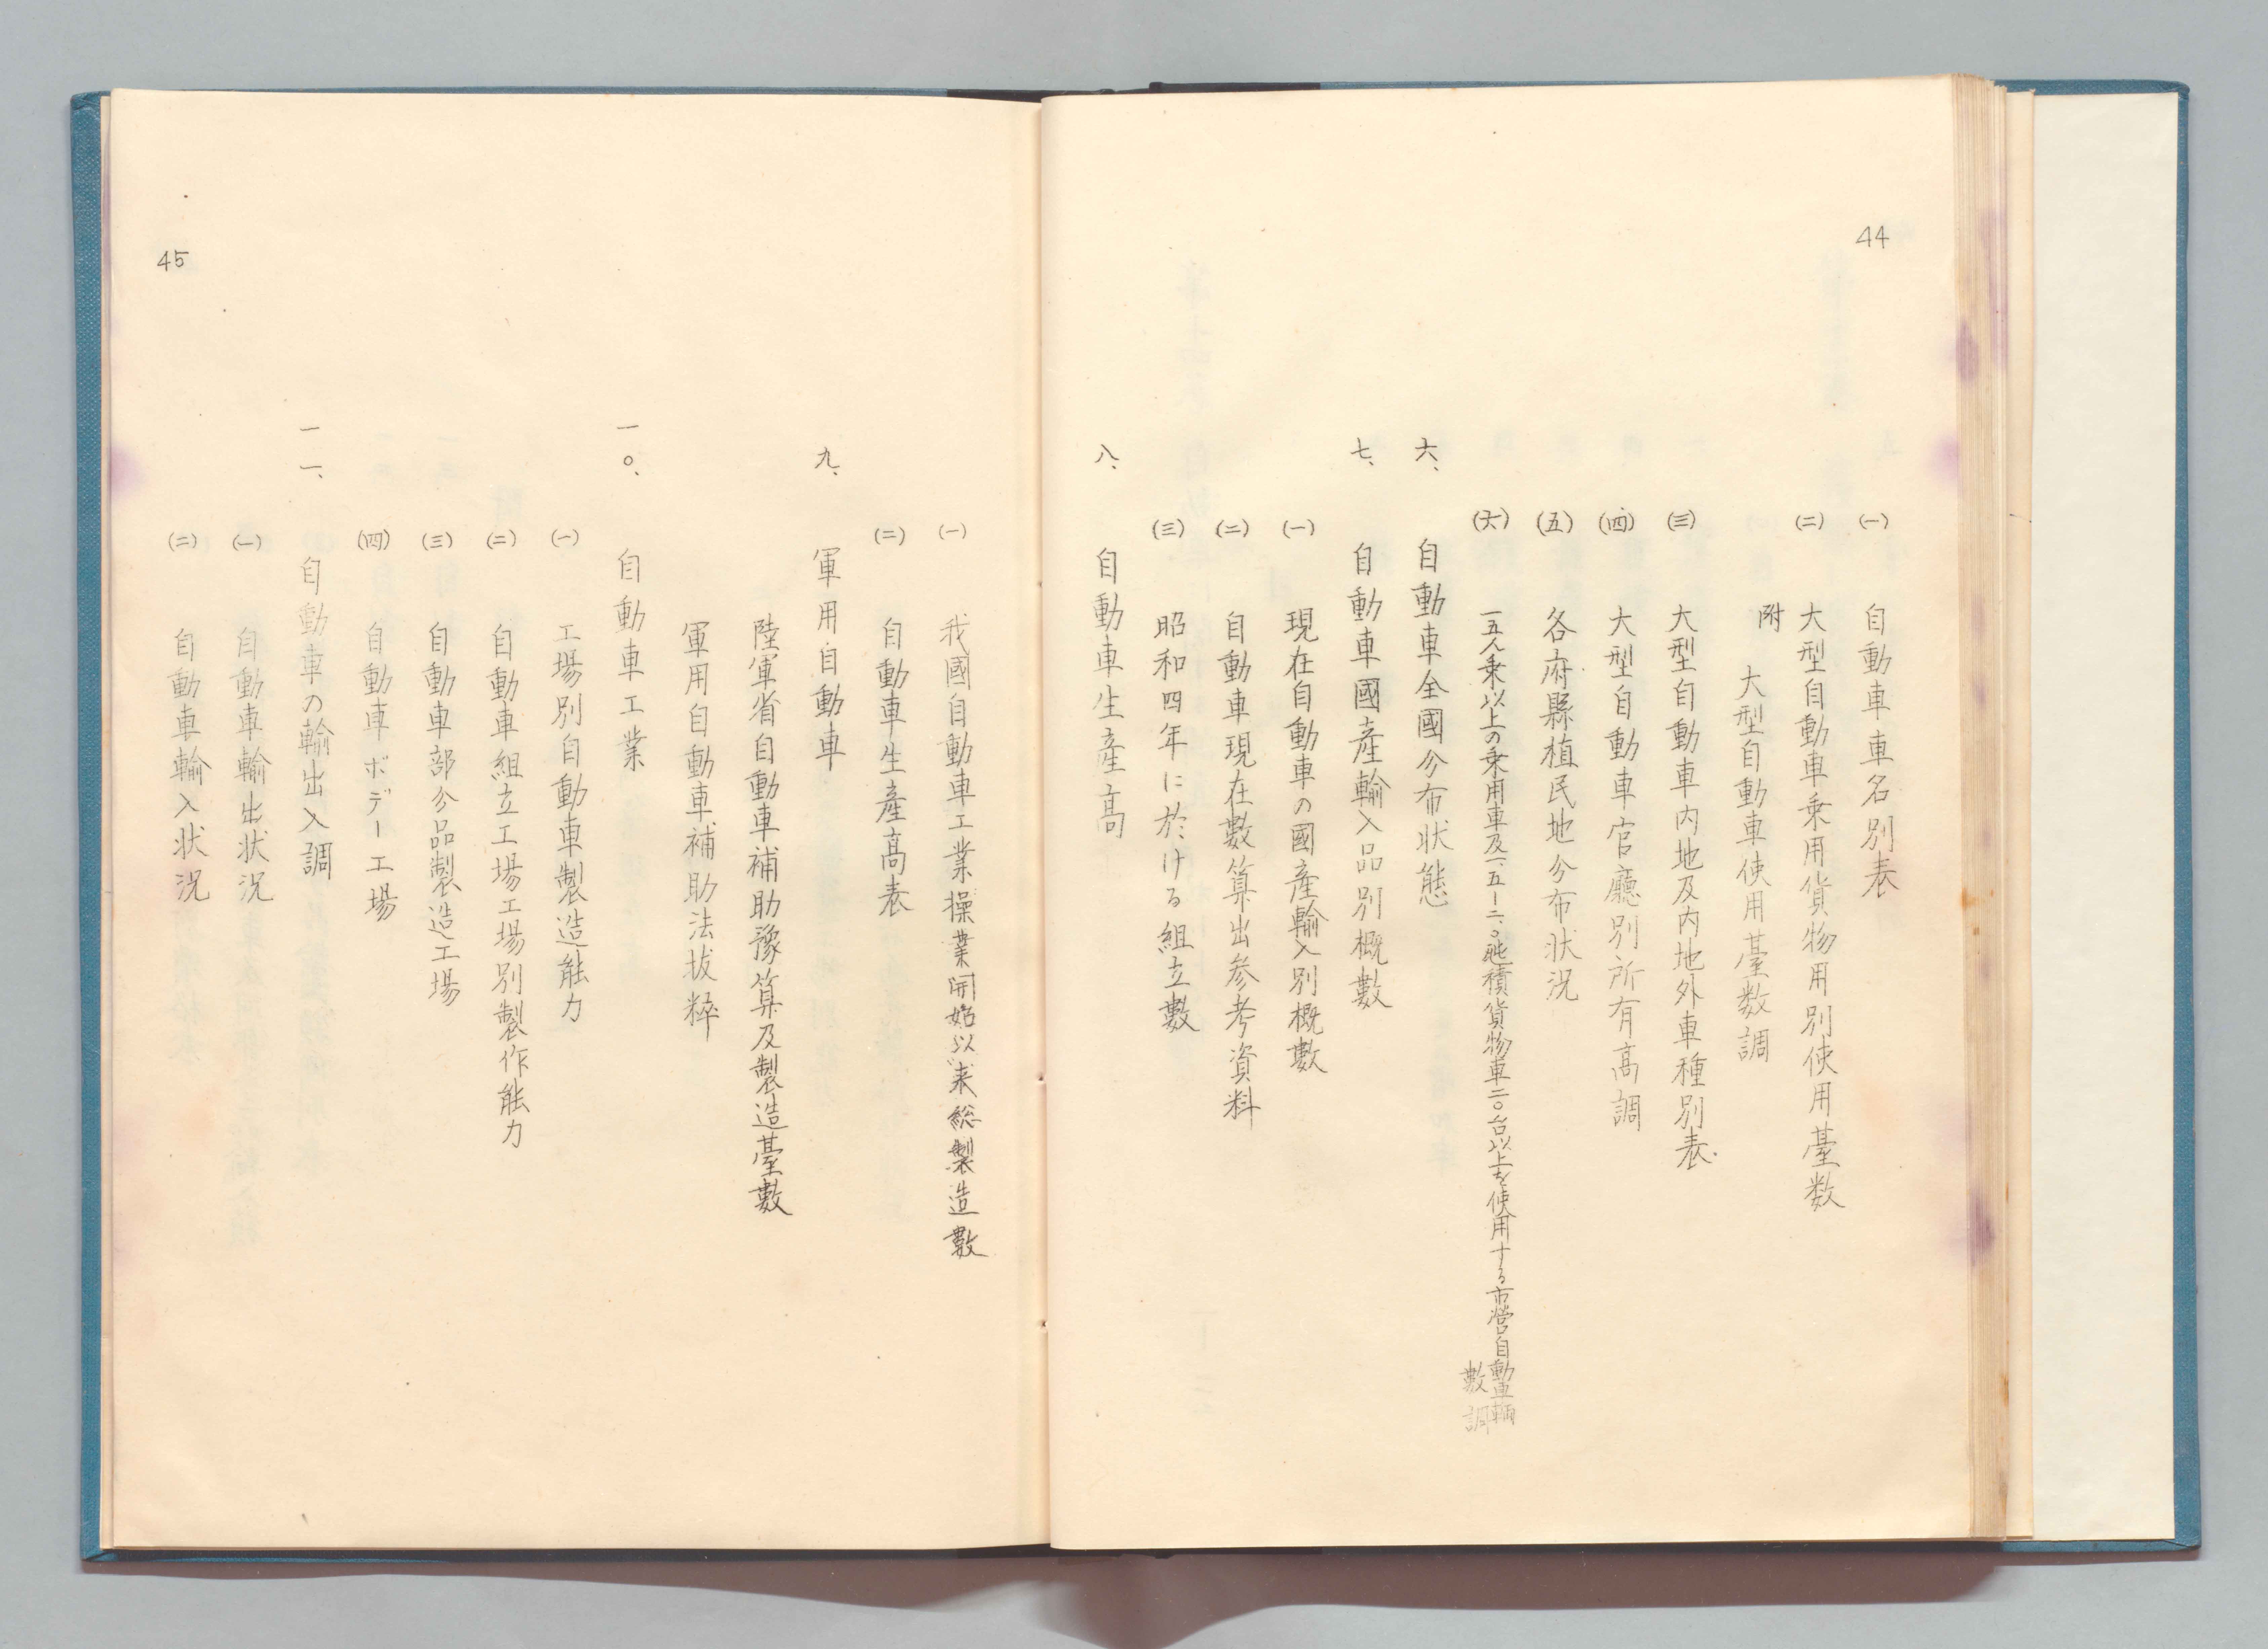 44
(一) 自動車車名別表
(二) 大型自動車乗用貨物用別使用臺数
附 大型自動車使用臺数調
(三) 大型自動車内地及内地外車種別表
(四) 大型自動車官廳別所有高調
(五) 各府縣植民地分布状況
(六) 一五人乗以上の乗用車及一、五ー二、〇瓲積貨物車二〇台以上を使用する市営自動車輛
數調
六、 自動車全國分布状態
七、 自動車國産輸入品別概數
(一) 現在自動車の國産輸入別概數
(二) 自動車現在數算出参考資料
(三) 昭和四年に於ける組立數
八、 自動車生産高
(一) 我國自動車工業操業開始以来総製造數
(二) 自動車生産高表
九、 軍用自動車
陸軍省自動車補助豫算及製造臺數
軍用自動車補助法抜粹
一〇、 自動車工業
(一) 工場別自動車製造能力
(二) 自動車組立工場工場別製作能力
(三) 自動車部分品製造工場
(四) 自動車ボデー工場
一一、 自動車の輸出入調
(一) 自動車輸出状況
(二) 自動車輸入状況
45